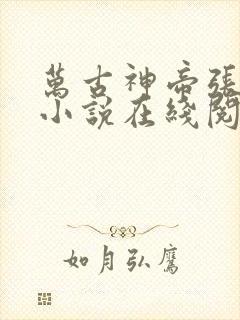 萬古神帝張
小說在綫閱
如月弘鷹